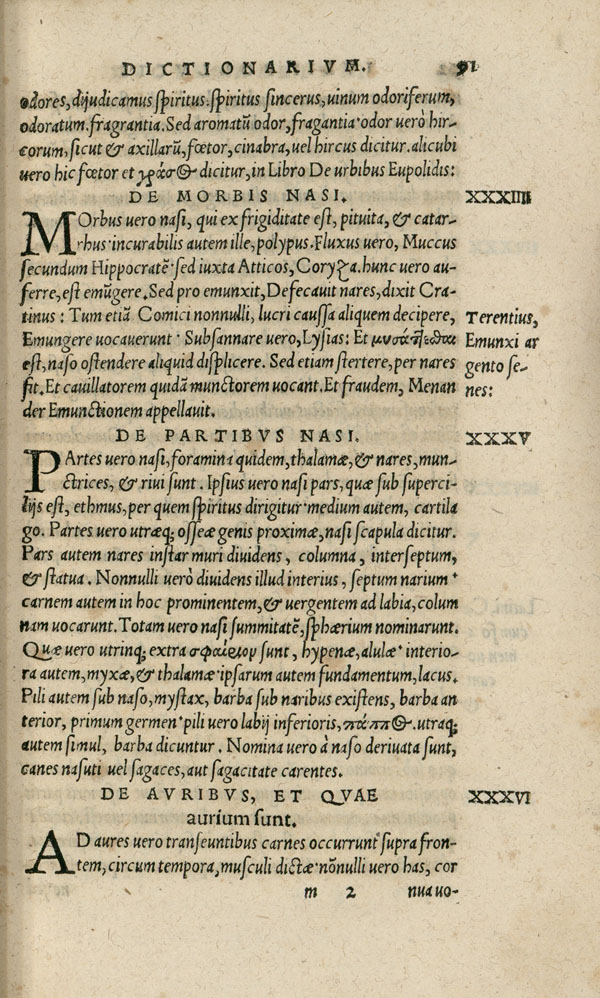 DICTIONARIVM. 91
odores, dijudicamus spiritus. spiritus sincerus, uinum odoriferum,
odoratum. fragrantia. Sed aromatũ odor, fragantia· odor uerò hir-
corum, sicut & axillarũ, fœtor, cinabra, uel hircus dicitur. alicubi
uero hic fœtor et γράσος dicitur, in Libro De urbibus Eupolidis:
DE MORBIS NASI. XXXIIII
MOrbus uero nasi, qui ex frigiditate est, pituita, & catar-
rhus· incurabilis autem ille, polypus. Fluxus uero, Muccus
secundum Hippocratẽ· sed iuxta Atticos, Coryza. hunc uero au-
ferre, est emũgere. Sed pro emunxit, Defecauit nares, dixit Cra-
tinus: Tum etiã Comici nonnulli, lucri caussa aliquem decipere,
Terentius,
Emungere uocauerunt· Subsannare uero, Lysias: Et
Emunxi ar
est, naso ostendere aliquid displicere. Sed etiam stertere, per nares
gento se-
fit. Et cauillatorem quidã munctorem uocant. Et fraudem, Menan
nes:
der Emunctionem appellauit.
DE PARTIBVS NASI. XXXV
PArtes uero nasi, foramina quidem, thalamæ, & nares, mun-
ctrices, & riui sunt. Ipsius uero nasi pars, quæ sub superci-
lijs est, ethmus, per quem spiritus dirigitur· medium autem, cartila
go. Partes uero utræq; osseæ genis proximæ, nasi scapula dicitur.
Pars autem nares instar muri diuidens, columna, interseptum,
& statua. Nonnulli uerò diuidens illud interius, septum narium·
carnem autem in hoc prominentem, & uergentem ad labia, colum
nam uocarunt. Totam uero nasi summitatẽ, sphærium nominarunt.
Quæ uero utrinq; extra sunt, hypenæ, alulæ· interio-
ra autem, myxæ, & thalamæ· ipsarum autem fundamentum, lacus.
Pili autem sub naso, mystax, barba sub naribus existens, barba an
terior, primum germen· pili uero labij inferioris, πάππος. utraq;
autem simul, barba dicuntur. Nomina uero à naso deriuata sunt,
canes nasuti uel sagaces, aut sagacitate carentes.
DE AVRIBVS, ET QVAE XXXVI
aurium sunt.
AD aures uero transeuntibus carnes occurrunt· supra fron-
tem, circum tempora, musculi dictæ· nõnulli uero has, cor
m 2 nua uo-